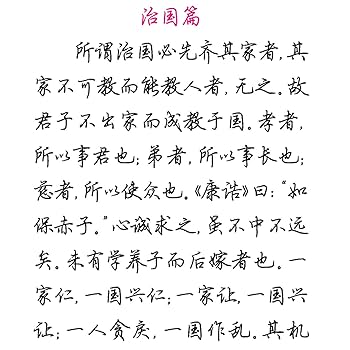 治国篇
所谓治国必先齐其家者,其
家不可教而能教人者,无之。故
君子不出家而成教于国。孝者,
所以事君也;弟者,所以事长也;
慈者,所以使众也。《康诰》曰:“如
保赤子。”心诚求之,虽不中不远
矣。未有学养子而后嫁者也。一
家仁,一国兴仁;一家让,一国兴
让;一人贪戾,一国作乱。其机